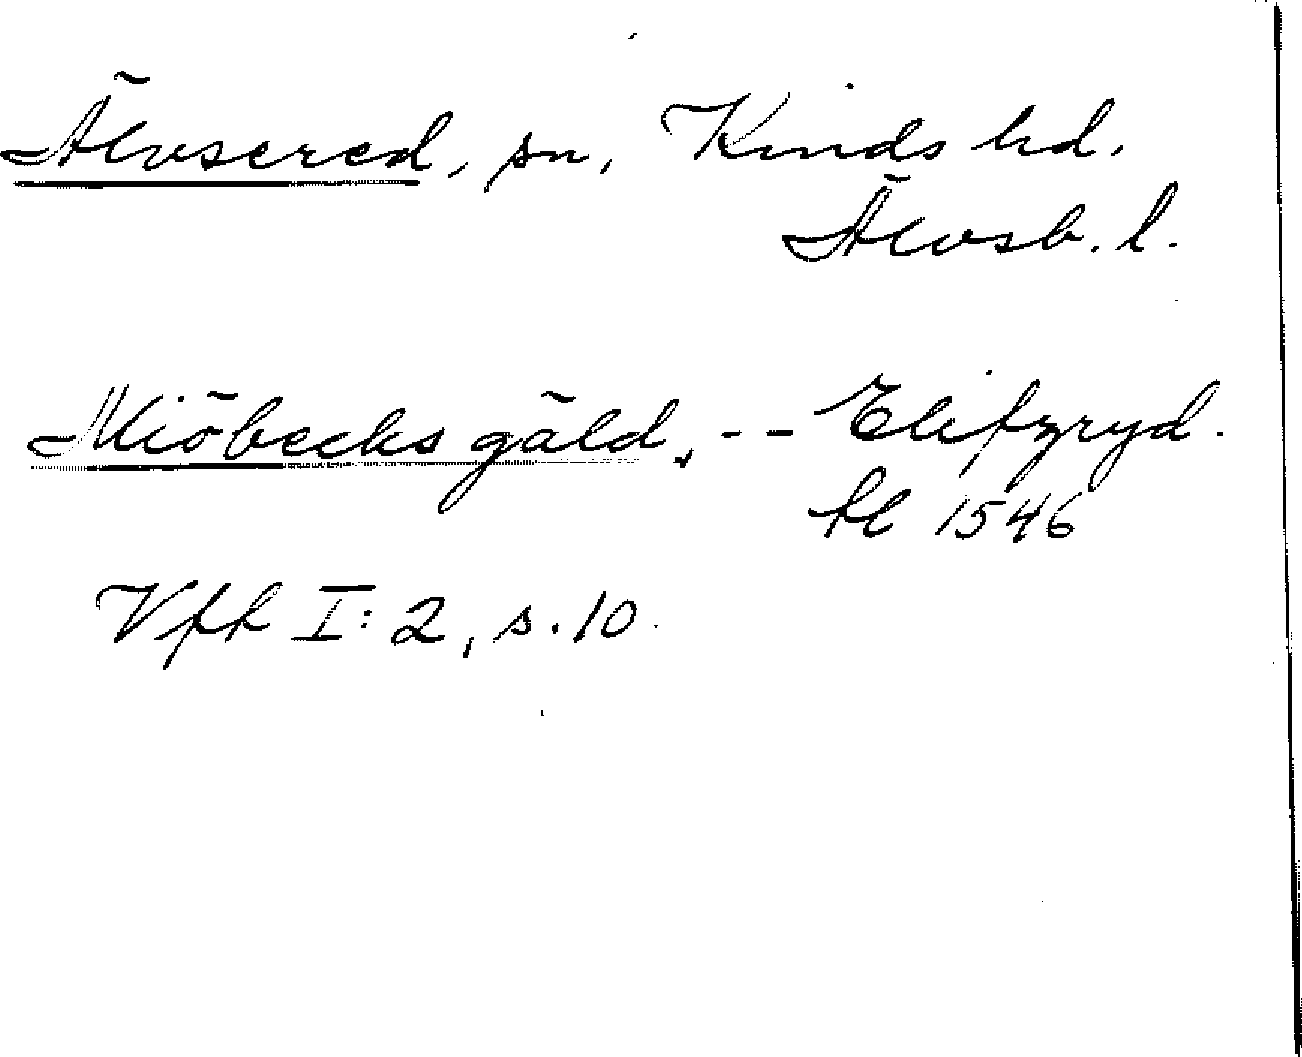 Älvsered, sn, Kinds hd.
Älvsb. l.
Miöbecks gäld, -- Elifzryd.
kl 1546
Vfk I:2, s. 10.